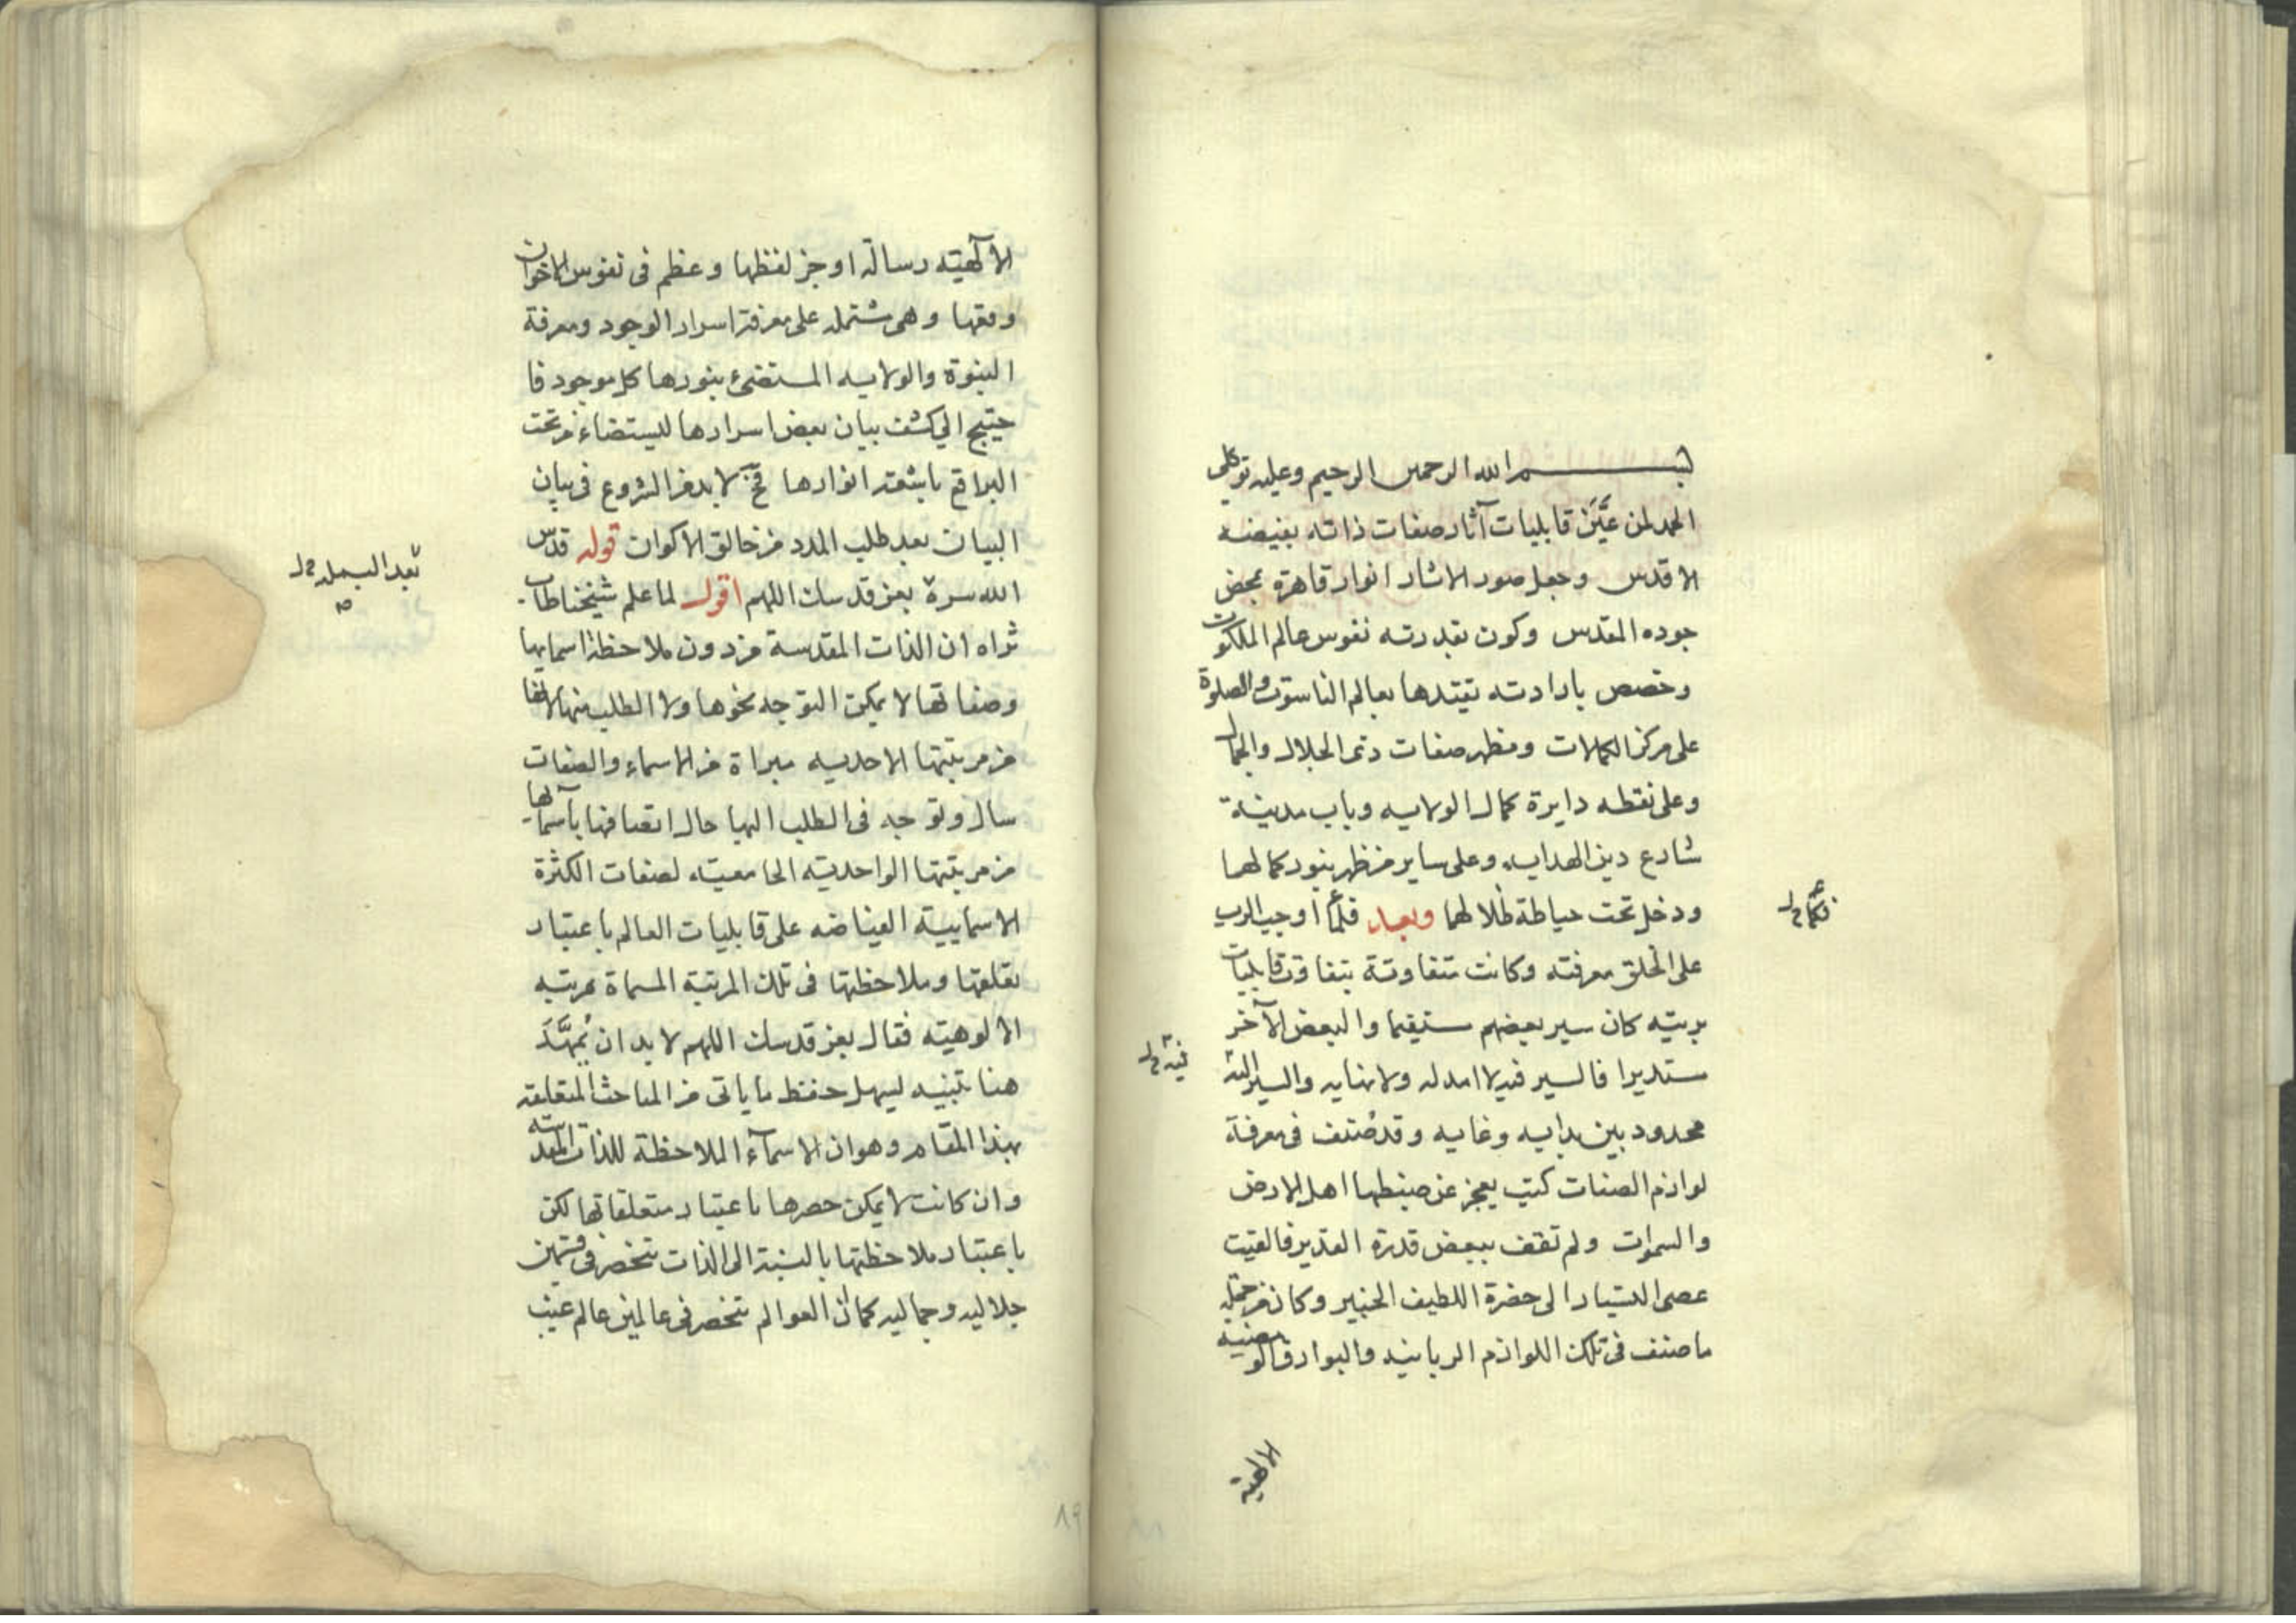 بسم الله الرحمن الرحيم وعليه توكلي
الحمد لمن عَيَّنَ قابليات آثار صفات ذاته بفيضه
الاقدس وجعل صور الاثار انوار قاهرة بمحض
جوده المقدس وكون بقدرته نفوس عالم الملكوت
وخصص بارادته تقيدها بعالم الناسوت والصلوة
على مركز الكمالات ومظهر صفات ذى الجلال والجمال
وعلى نقطه دايرة كمال الولايه وباب مدينة
شارع دين الهدايه وعلى ساير من ظهر بنور كمالهما
ودخل تحت حياطة ظلالهما وبعد فلما اوجب الرب
على الخلق معرفته وكانت متفاوتة بتفاوت قابليات
بريته كان سير بعضهم مستقيما والبعض الآخر
مستديرا فالسير فيه لا امد له ولا نهايه والسير اليه
محدود بين بدايه وغايه وقد صُنف فى معرفة
لوازم الصفات كتب يعجز عن ضبطها اهل الارض
والسموات ولم تقف ببعض قدرة القدير فالقيت
عصى التسيار الى حضرة اللطيف الخبير وكان من جمله
ما صنف فى تلك اللوازم الربانيه والبوارق
الاهية
الآلهيته رسالة اوجز لفظها وعظم فى نفوس الاخوان
وقعها وهى مشتمله على معرفة اسرار الوجود ومعرفة
النبوة والولايه المستضىء بنورها كل موجود فا
حتيج الى كشف بيان بعض اسرارها ليستضاء من تحت
البراقع باشعة انوارها فح لا بد من الشروع فى بيان
البيان بعد طلب المدد من خالق الاكوان قوله قدس
الله سره بعز قدسك اللهم اقول لما علم شيخنا طاب
ثراه ان الذات المقدسة من دون ملاحظة اسمايها
وصفاتها لا يمكن التوجه نحوها ولا الطلب منها لانها
من مرتبتها الاحديه مبراة من الاسماء والصفات
سال وتوجه فى الطلب اليها حال اتصافها باسمائها
من مرتبتها الواحديته الجامعيته لصفات الكثرة
الاسماييته الفياضه على قابليات العالم باعتبار
تعلقها وملاحظتها فى تلك المرتبة المسماة بمرتبه
الالوهيته فقال بعز قدسك اللهم لا بد ان نُمهَّدَ
هنا تنبيه ليسهل حفظ ما ياتى من المباحث المتعلقه
بهذا المقام وهو ان الاسمآء الملاحظة للذات المقدسه
وان كانت لا يمكن حصرها باعتبار متعلقاتها لكن
باعتبار ملاحظتها بالنسبة الى الذات تنحصر فى قسمين
جلاليه وجماليه كما ان العوالم تنحصر فى عالمين عالم غيب
بعد البسمله
٨٩